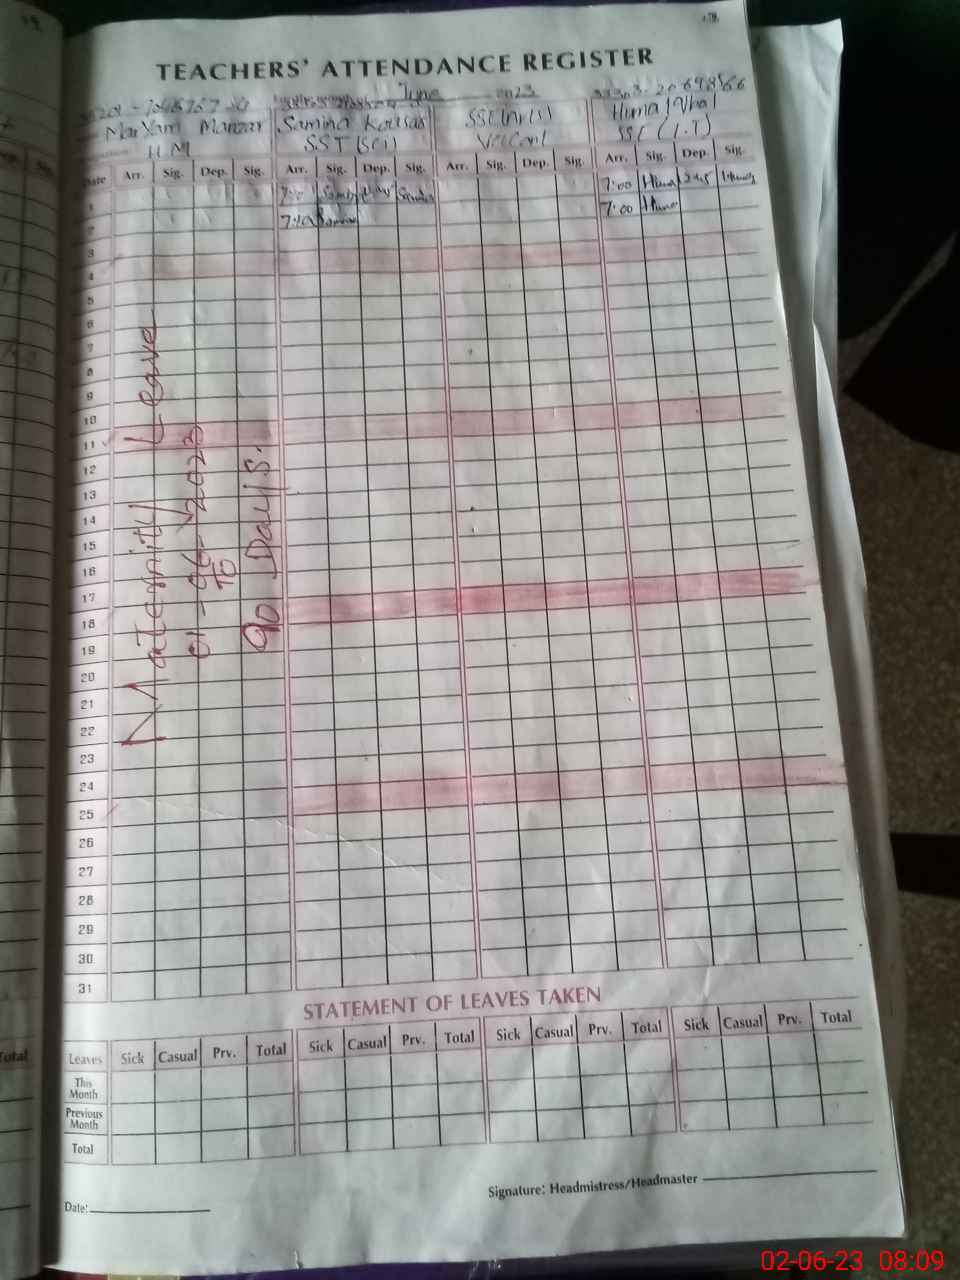 TEACHERS' ATTENDANCE REGISTER
June 2023
Maryam Manzar Samina Kousar SSE (Huma Iqbal
H M SST (Sci) Vacant SSE (I.T)
Date Arr. Sig. Dep. Sig. Arr. Sig. Dep. Sig. Arr. Sig. Dep. Sig. Arr. Sig. Dep. Sig.
1 7:00 Huma
2 7:10 7:00 Huma
3
4
5
6
7
8
9
10
11
12
13
14
15
16
17
18
19
20
21
22
23
24
25
26
27
28
29
30
31
Maternity Leave
01-06-2023
To
90 Days.
STATEMENT OF LEAVES TAKEN
Leaves Sick Casual Prv. Total Sick Casual Prv. Total Sick Casual Prv. Total Sick Casual Prv. Total
This Month
Previous Month
Total
Signature: Headmistress/Headmaster
Date:
Total
02-06-23 08:09